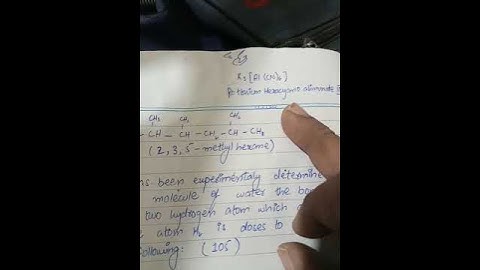 K₃[Al(CN)₆]
Potassium Hexacyano aluminate
CH₃ CH₃ CH₃
-CH-CH-CH₂-CH-CH₃
(2,3,5-methyl hexane)
has been experimentaly determine
molecule of water the bon
two hydrogen atom which a
atom H₂ is doses to
following: (105)